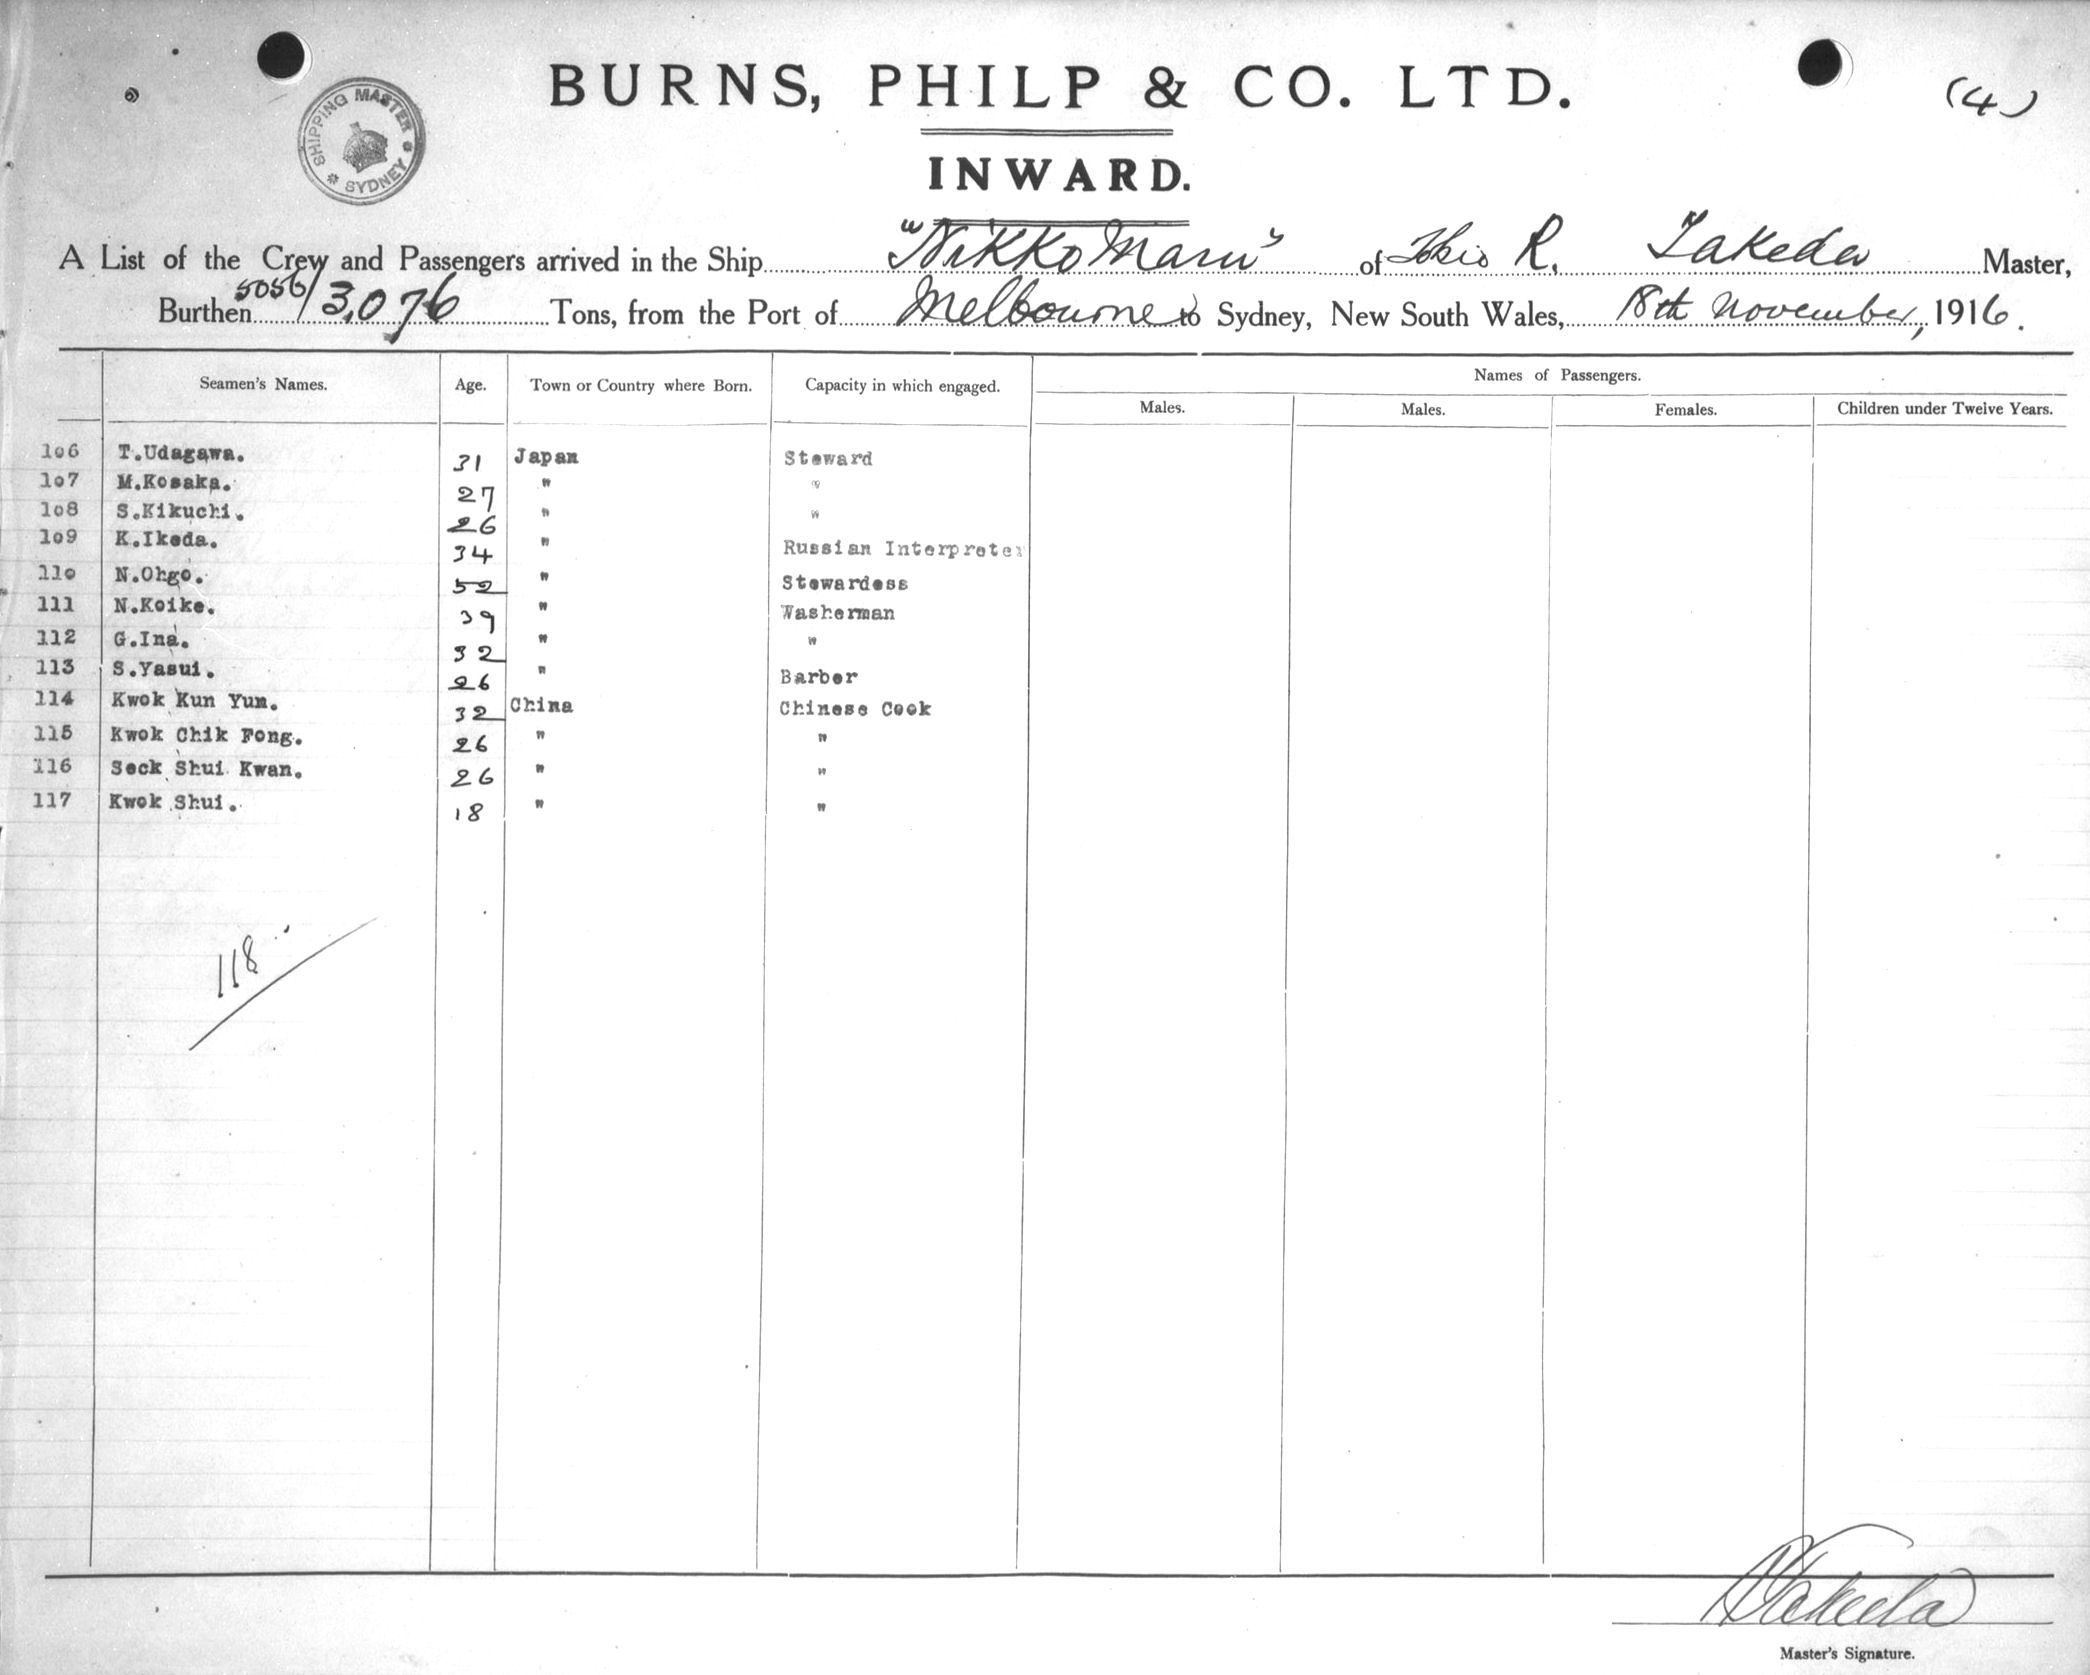 BURNS, PHILP & CO. LTD.
(4)
SHIPPING MASTER
SYDNEY
INWARD.
A List of the Crew and Passengers arrived in the Ship "Nikko Maru" of Tokio R. Takeda Master,
Burthen 5056/3,076 Tons, from the Port of Melbourne to Sydney, New South Wales, 18th November, 1916.
Seamen's Names. Age. Town or Country where Born. Capacity in which engaged. Names of Passengers.
Males. Males. Females. Children under Twelve Years.
106 T.Udagawa. 31 Japan Steward
107 M.Kosaka. 27 " "
108 S.Kikuchi. 26 " "
109 K.Ikeda. 34 " Russian Interpreter
110 N.Ohgo. 52 " Stewardess
111 N.Koike. 39 " Washerman
112 G.Ina. 32 " "
113 S.Yasui. 26 " Barber
114 Kwok Kun Yum. 32 China Chinese Cook
115 Kwok Chik Fong. 26 " "
116 Seck Shui Kwan. 26 " "
117 Kwok Shui. 18 " "
118
R Takeda
Master's Signature.